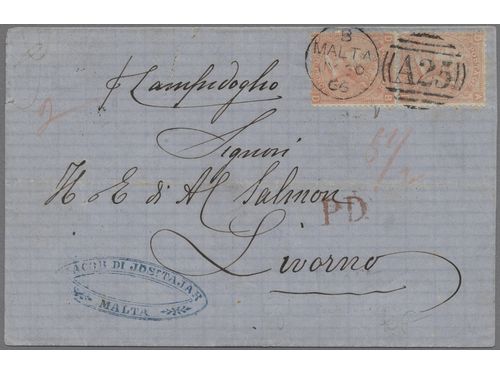 B
MALTA
6
66
A25
Campidoglio
Signori
H & E di A Salmon
P.D.
Livorno
JACOB DI JOS TAJAR
MALTA